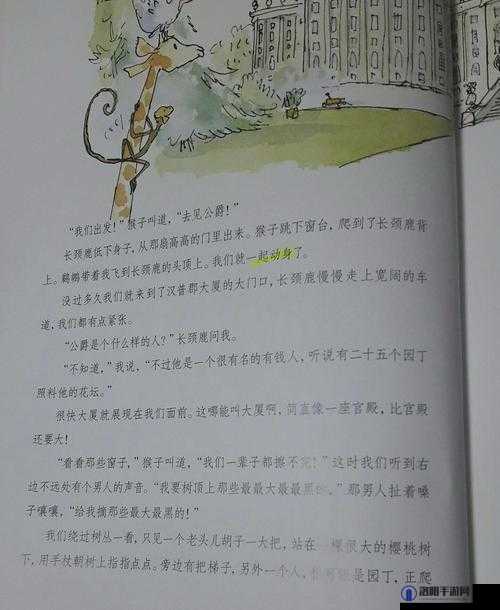 “我们出发！”猴子叫道，“去见公爵！”
长颈鹿低下身子，从那扇高高的门里出来。猴子跳下窗台，爬到了长颈鹿背
上。鹈鹕带着我飞到长颈鹿的头顶上。我们就一起动身了。
没过多久我们就来到了汉普郡大厦的大门口，长颈鹿慢慢走上宽阔的车
道，我们都有点紧张。
“公爵是个什么样的人？”长颈鹿问我。
“不知道，”我说，“不过他是一个很有名的有钱人，听说有二十五个园丁
照料他的花坛。”
很快大厦就展现在我们面前。这哪能叫大厦啊，简直像一座宫殿，比宫殿
还要大！
“看看那些窗子，”猴子叫道，“我们一辈子都擦不完！”这时我们听到右
边不远处有个男人的声音。“我要树顶上那些最最大最最黑的，”那男人扯着嗓
子嚷嚷，“给我摘那些最大最黑的！”
我们绕过树丛一看，只见一个老头儿胡子一大把，站在一棵很大的樱桃树
下，用手杖朝树上指指点点。旁边有把梯子，另外一个人，是园丁，正爬
洛阳手游网